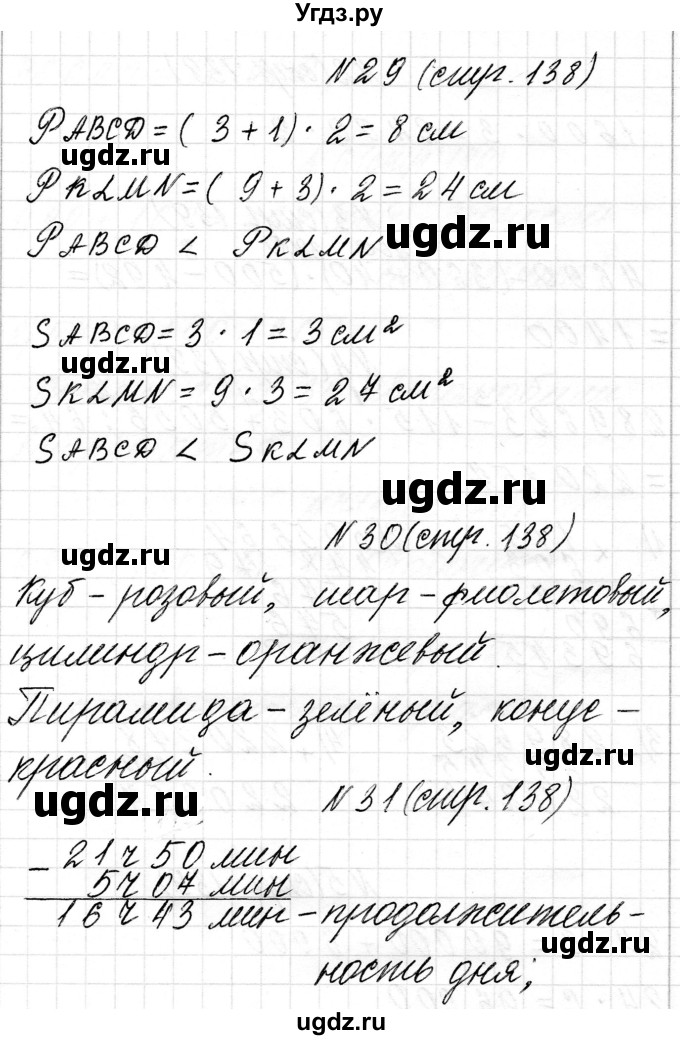 Угдз.ру
№29 (стр. 138)
PABCD = ( 3 + 1) · 2 = 8 см
ugdz.ru
PKLMN = ( 9 + 3) · 2 = 24 см
ugdz.ru
PABCD < PKLMN
SABCD = 3 · 1 = 3 см²
ugdz.ru
SKLMN = 9 · 3 = 27 см²
SABCD < SKLMN
ugdz.ru
№30 (стр. 138)
ugdz.ru
Куб – розовый, шар – фиолетовый,
цилиндр – оранжевый.
Пирамида – зелёный, конус –
ugdz.ru
красный.
ugdz.ru
№31 (стр. 138)
– 21 ч 50 мин
5 ч 07 мин
16 ч 43 мин – продолжитель-
ugdz.ru
ность дня;
ugdz.ru